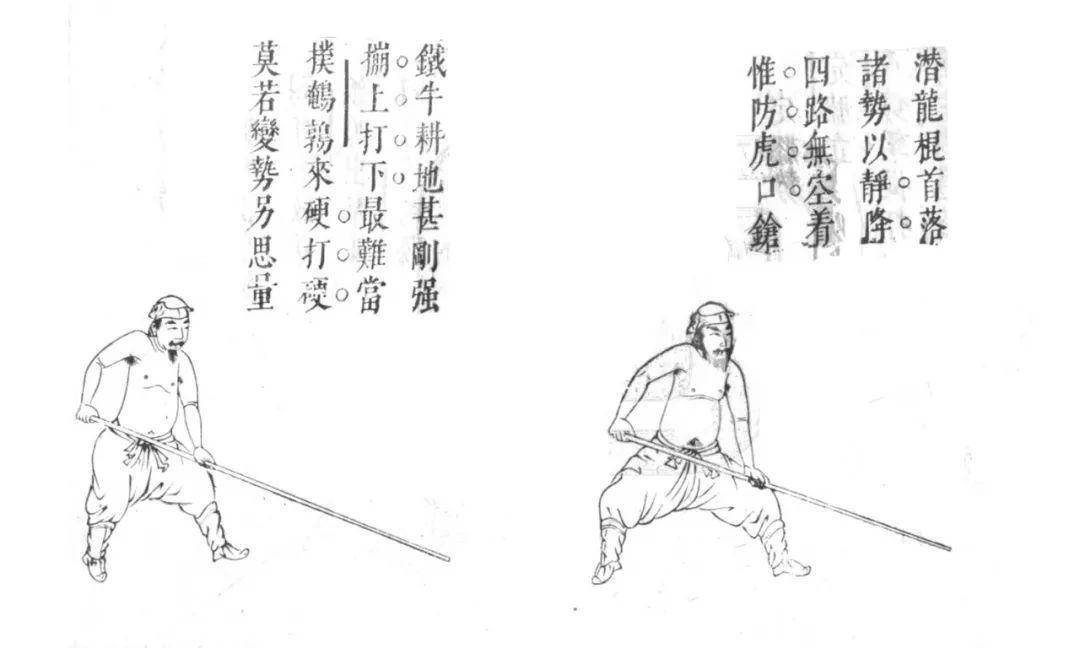 潜龍棍首落
諸勢以靜降
四路無空着
惟防虎口鎗
鐵牛耕地甚剛强
上打下最難當
撲鵪鶉來硬打硬
莫若變勢另思量